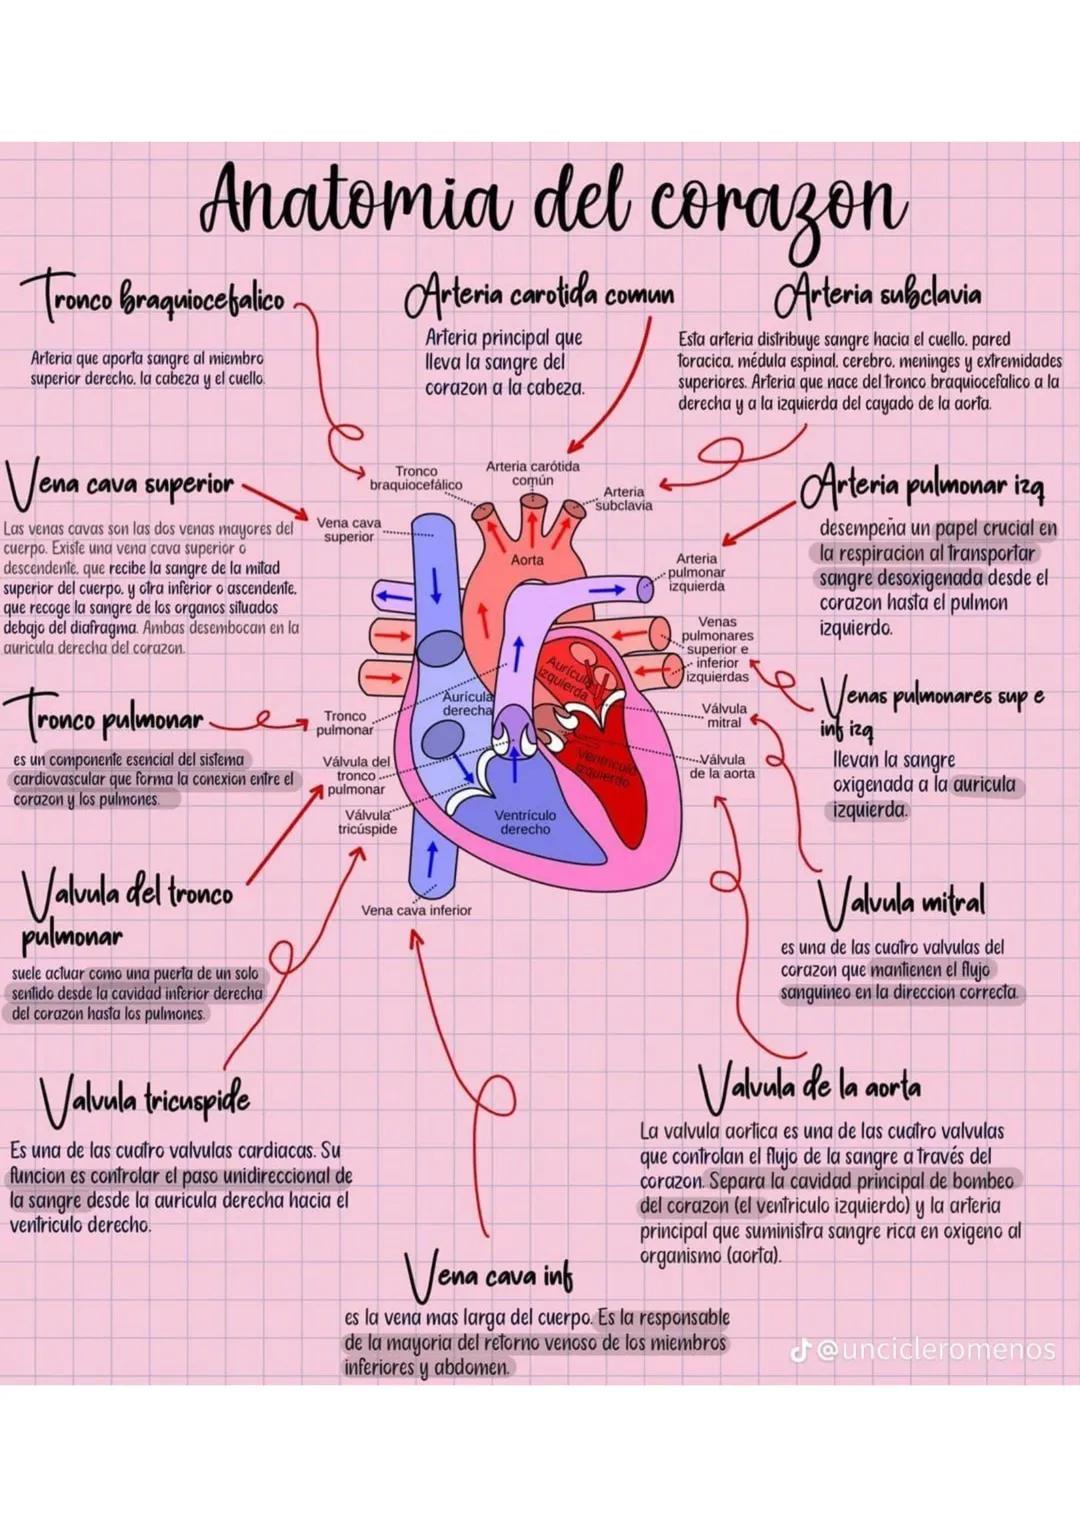 Anatomia del corazon
Tronco braquiocefalico
Arteria que aporta sangre al miembro
superior derecho, la cabeza y el cuello.
Arteria carotida comun
Arteria principal que
lleva la sangre del
corazon a la cabeza.
Arteria subclavia
Esta arteria distribuye sangre hacia el cuello, pared
toracica, médula espinal, cerebro, meninges y extremidades
superiores. Arteria que nace del tronco braquiocefalico a la
derecha y a la izquierda del cayado de la aorta.
Vena cava superior
Las venas cavas son las dos venas mayores del
cuerpo. Existe una vena cava superior o
descendente, que recibe la sangre de la mitad
superior del cuerpo, y otra inferior o ascendente,
que recoge la sangre de los organos situados
debajo del diafragma. Ambas desembocan en la
auricula derecha del corazon.
Tronco pulmonar
es un componente esencial del sistema
cardiovascular que forma la conexion entre el
corazon y los pulmones.
Valvula del tronco
pulmonar
suele actuar como una puerta de un solo
sentido desde la cavidad inferior derecha
del corazon hasta los pulmones.
Valvula tricuspide
Es una de las cuatro valvulas cardiacas. Su
funcion es controlar el paso unidireccional de
la sangre desde la auricula derecha hacia el
ventriculo derecho.
Tronco
braquiocefálico
Arteria carótida
común
Arteria
subclavia
Vena cava
superior
Aorta
Arteria
pulmonar
izquierda
Venas
pulmonares
superior e
inferior
izquierdas
Aurícula
izquierda
Aurícula
derecha
Tronco
pulmonar
Válvula
mitral
Válvula del
tronco
pulmonar
Válvula
de la aorta
Ventrículo
izquierdo
Válvula
tricúspide
Ventrículo
derecho
Vena cava inferior
Arteria pulmonar izq
desempeña un papel crucial en
la respiracion al transportar
sangre desoxigenada desde el
corazon hasta el pulmon
izquierdo.
Venas pulmonares sup e
inf izq
llevan la sangre
oxigenada a la auricula
izquierda.
Valvula mitral
es una de las cuatro valvulas del
corazon que mantienen el flujo
sanguineo en la direccion correcta.
Valvula de la aorta
La valvula aortica es una de las cuatro valvulas
que controlan el flujo de la sangre a través del
corazon. Separa la cavidad principal de bombeo
del corazon (el ventriculo izquierdo) y la arteria
principal que suministra sangre rica en oxigeno al
organismo (aorta).
Vena cava inf
es la vena mas larga del cuerpo. Es la responsable
de la mayoria del retorno venoso de los miembros
inferiores y abdomen.
@uncicleromenos